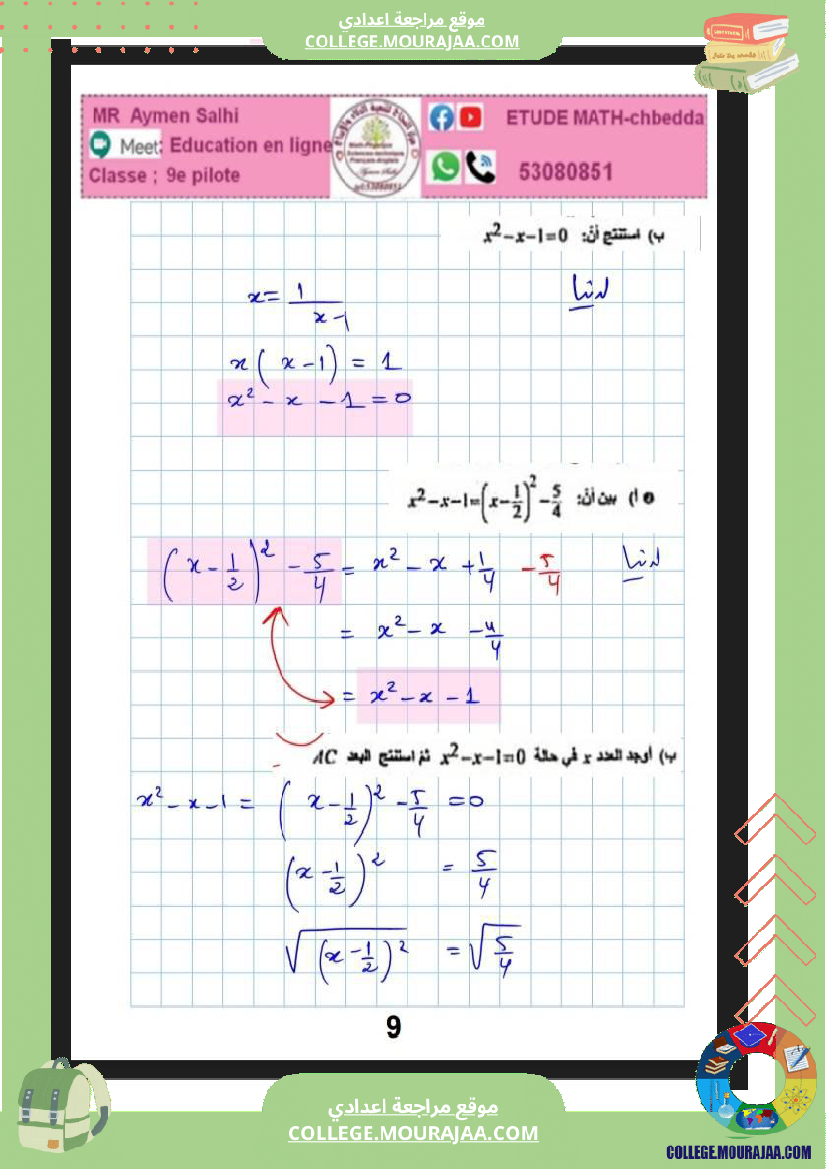 موقع مراجعة اعدادي
COLLEGE.MOURAJAA.COM
MR Aymen Salhi
Meet: Education en ligne
Classe ; 9e pilote
ETUDE MATH-chbedda
53080851
ب) استنتج أنّ: x²-x-1=0
لدينا
x = 1/(x-1)
x(x-1) = 1
x² - x - 1 = 0
أ) بين أنّ: x²-x-1=(x-1/2)²-5/4
لدينا
(x - 1/2)² - 5/4 = x² - x + 1/4 - 5/4
= x² - x - 4/4
= x² - x - 1
ب) أوجد العدد x في حالة x²-x-1=0 ثمّ استنتج البعد AC
x² - x - 1 = (x - 1/2)² - 5/4 = 0
(x - 1/2)² = 5/4
√(x - 1/2)² = √5/4
9
موقع مراجعة اعدادي
COLLEGE.MOURAJAA.COM
COLLEGE.MOURAJAA.COM